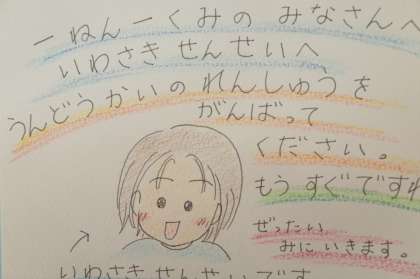 一ねん一くみの みなさんへ
いわさき せんせいへ
うんどうかいの れんしゅうを
がんばって
ください。
もう すぐですね
ぜったい
みに いきます。
いわさき せんせいです